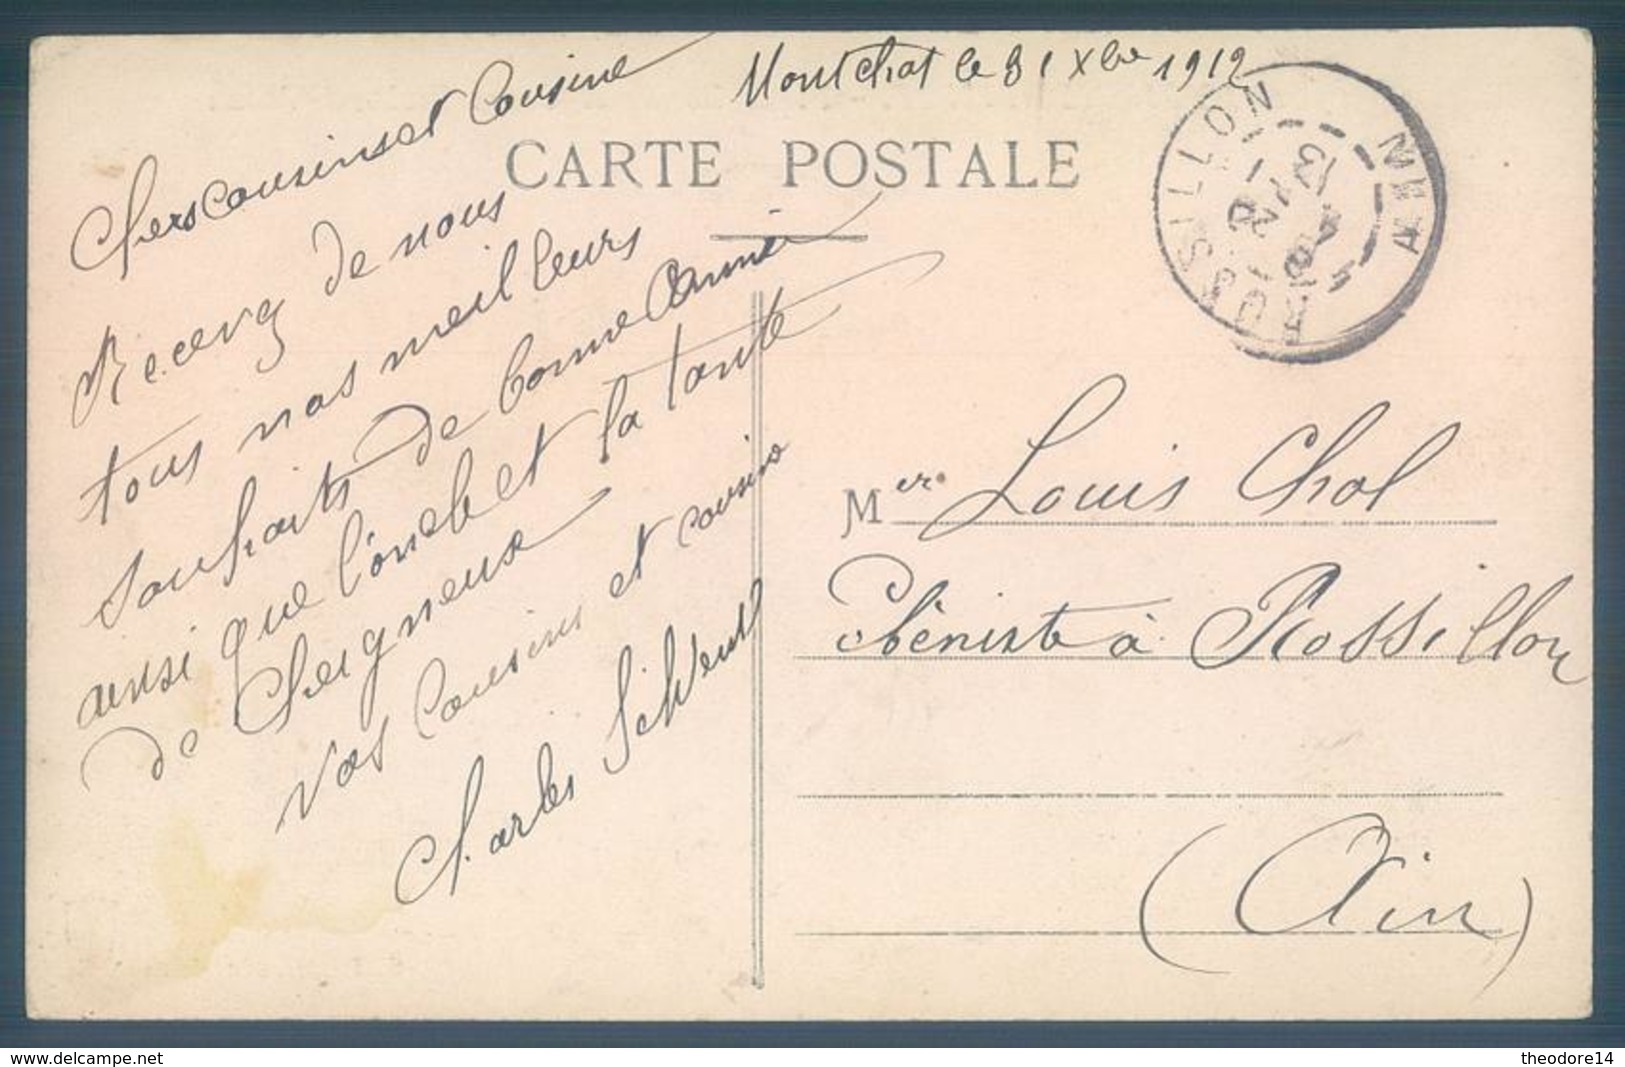 Montchat le 31 Xbre 1912
CARTE POSTALE
Chers cousins et Cousine
Recevez de nous
tous nos meilleurs
souhaits de bonne Année
ainsi que l'oncle et la tante
de Cheigneux
Vos Cousins et cousine
Charles
ROSSILLON
AIN
Mer Louis Chol
ébéniste à Rossillon
(Ain)
www.delcampe.net
theodore14